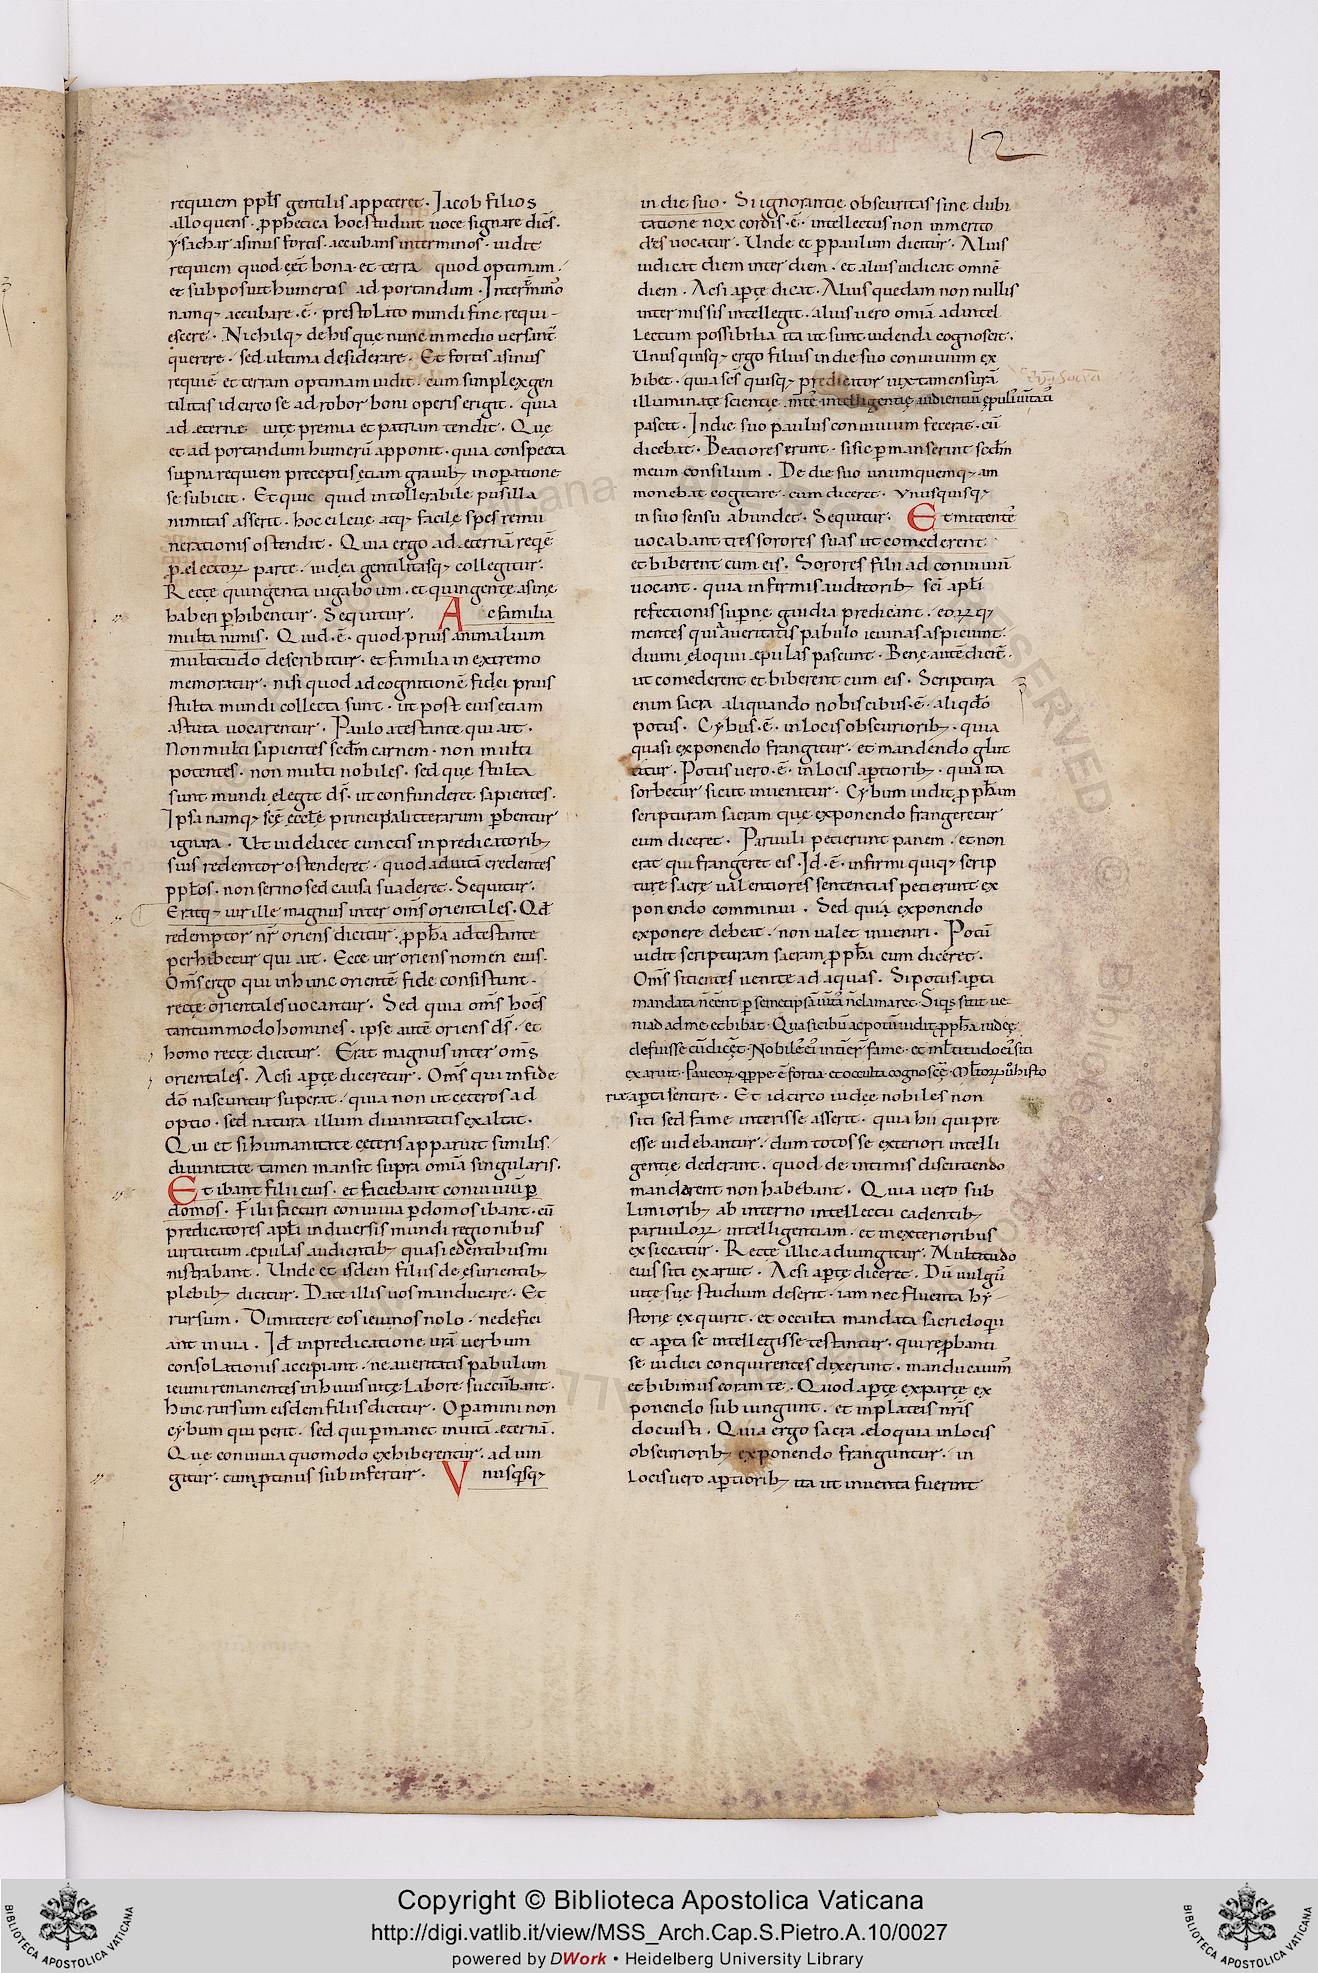 12
requiem ppl̅s gentilis appeteret. Jacob filios
alloquens. p̲phetica hoc studuit uoce signare dicēs.
ysachar asinus fortis. accubans inter minos. uidit
requiem quod eēt bona. et terra quod optimam.
et subposuit humerus ad portandum. Inter
namq; accubare. ē. prestolato mundi fine requi-
escere. Nichilq; de his que nunc in medio uersant̄
querere. sed ultima desiderare. Et fortis asinus
requiē et terram optimam uidit. cum simplex gen
tilitas idcirco se ad robor boni operis erigit. quia
ad æternæ uitę premia et patriam tendit. Que
et ad portandum humerū apponit. quia conspecta
sup̲na requiem preceptis etiam grauib; in op̲atione
se subicit. Et quic quid intollerabile pusilla
nimitas asserit. hoc ei leue atq; facile spes remu
nerationis ostendit. Quia ergo ad æternā reqē
p̲ electoꝝ parte. iudea gentilitasq; collegitur.
Recte quingenta iuga boum. et quingente asine
haberi p̲hibentur. Sequitur. Ac familia
multa nimis. Quid. ē. quod prius animalium
multitudo describitur. et familia in extremo
memoratur. nisi quod ad cognitionē fidei prius
stulta mundi collecta sunt. ut post eius etiam
astuta uocarentur. Paulo attestante qui ait.
Non multi sapientes scdm̄ carnem. non multi
potentes. non multi nobiles. sed que stulta
sunt mundi elegit ds̄. ut confunderet sapientes.
Ipsa namq; scē eccl̄e principa litterarum p̲hbentur
ignara. Ut uidelicet cunctis in predicatorib;
suis redemtor ostenderet. quod ad uitā credentes
ppl̄os. non sermo sed causa suaderet. Sequitur.
Eratq; uir ille magnus inter om̄s orientales. Qd̄
redemptor nr̄ oriens dicitur. p̲ph̄a adtestante
perhibetur qui ait. Ecce uir oriens nomen eius.
Om̄s ergo qui in hunc orientē fide consistunt.
recte orientales uocantur. Sed quia om̄s hoēs
tantummodo homines. ipse autē oriens ds̄. et
homo recte dicitur. Erat magnus inter om̄s
orientales. Ac si ap̲te diceretur. Om̄s qui in fide
dō nascuntur superat. quia non ut ceteros ad
optio. sed natura illum diuinitatis exaltat.
Qui et si humanitate ceteris apparuit similis.
diuinitate tamen mansit supra omīa singularis.
Et ibant filii eius. et faciebant conuiuiū p̲
domos. Filii facturi conuiuia p̲ domos ibant. cū
predicatores apl̄i in diuersis mundi regionibus
uirtutum epulas audientib; quasi edentibus mi
nistrabant. Unde et isdem filiis de esurientib;
plebib; dicitur. Date illis uos manducare. Et
rursum. Dimittere eos ieiunos nolo. ne defici
ant in uia. Id ē in predicatione urā uerbum
consolationis accipiant. ne a ueritatis pabulum
ieiuni remanentes in huius uitę labore succūbant.
hinc rursum eisdem filiis dicitur. Op̲amini non
cybum qui perit. sed qui p̲manet in uitā eternā.
Que conuiuia quomodo exhiberentur. ad iun
gitur. cum p̲tinus sub infertur. Vnusq̄sq;
in die suo. Si ignorantie obscuritas sine dubi
tatione nox cordis. ē. intellectus non inmerito
dies uocatur. Unde et p̲ paulum dicitur. Alius
iudicat diem inter diem. et alius iudicat omnē
diem. Ac si ap̲te dicat. Alius quedam non nullis
intermissis intellegit. alius uero omīa ad intel
lectum possibilia ita ut sunt uidenda cognoscit.
Unusquisq; ergo filius in die suo conuiuium ex
hibet. quia scs̄ quisq; predicator iuxta mensurā
illuminatę scientie
pascit. In die suo paulus conuiuium fecerat. cū
dicebat. Beatior es erunt. si sic p̲manserint scdm̄
meum consilium. De die suo unumquemq; am
monebat cogitare. cum diceret. Vnusquisq;
in suo sensu abundet. Sequitur. Et mittentes̄
uocabant tres sorores suas ut comederent
et biberent cum eis. Sorores filii ad conuiuiū
uocant. quia infirmis auditorib; scī apl̄i
refectionis sup̲ne gaudia predicant. eoꝝ q;
mentes qui a ueritatis pabulo ieiunas aspiciunt.
diuini eloquii epulas pascunt. Bene autē dicit̄.
ut comederent et biberent cum eis. Scriptura
enim sacra aliquando nobis cibus. ē. aliqdo̅
potus. Cybus. ē. in locis obscurioribꝫ. quia
quasi exponendo frangitur. et mandendo glut
titur. Potus uero. ē. in locis ap̲tiorib;. quia ita
sorbetur sicut inuenitur. Cybum uidit p̲ph̄am
scripturam sacram que exponendo frangeretur
cum diceret. Paruuli petierunt panem. et non
erat qui frangeret eis. Id. ē. infirmi quiq; scrip
turę sacrę ualentiores sententias petierunt ex
ponendo comminui. Sed qui exponendo
exponere debeat. non ualet inueniri. Potū
uidit scripturam sacram p̲ph̄a cum diceret.
Om̄s sitientes uenite ad aquas. Si potus ap̲ta
mandata n̄ cēnt p̲ semetipsā uītā n̄ clamaret. Siqs̄ sitit ue
niad ad me et bibat. Quasi cibū ac potū uidit p̲ph̄a iudeę
defuisse cū dicēt. Nobiles̄ ei̅ int̄ier̄ fame. et ml̄titudo ei̅ siti
exaruit.
ria ap̲ta sentire. Et idcirco iudęe nobiles non
siti sed fame interisse asserit. quia hii qui pre
esse uidebantur. dum totos se exteriori intelli
gentię dederant. quod de intimis discutiendo
manderent non habebant. Quia uero sub
limiorib; ab interno intellectu cadentib;
paruuloꝝ intelligentiam. et in exterioribus
exsiccatur. Recte illic adiungitur. Multitudo
eius siti exaruit. Ac si ap̲te diceret. Dū uulgus̄
uitę suę studium deserit. iam nec fluenta hy
storię exquirit. et occulta mandata sacri eloqui
et ap̲ta se intellegisse testantur. qui rep̲banti
se iudici conquirentes dixerunt. manducauim̄
et bibimus coram te. Quod ap̲te exparte ex
ponendo subiungunt. et in plateis nr̄is
docuisti. Quia ergo sacra eloquia in locis
obscuriorib; exponendo franguntur. in
locis uero ap̲tiorib; ita ut inuenta fuerint
Copyright © Biblioteca Apostolica Vaticana
http://digi.vatlib.it/view/MSS_Arch.Cap.S.Pietro.A.10/0027
powered by DWork • Heidelberg University Library
BIBLIOTECA APOSTOLICA VATICANA
BIBLIOTECA APOSTOLICA VATICANA